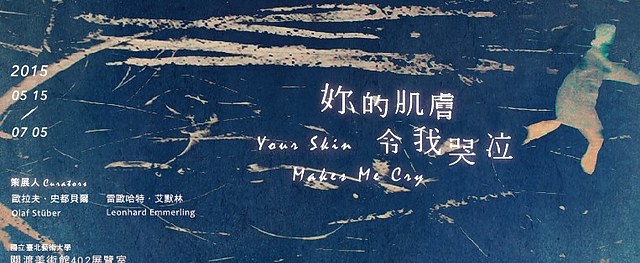 2015
05 15
/
07 05
妳的肌膚
令我哭泣
Your Skin
Makes Me Cry
策展人 Curators
歐拉夫・史都貝爾
Olaf Stüber
雷歐哈特・艾默林
Leonhard Emmerling
國立臺北藝術大學
關渡美術館402展覽室